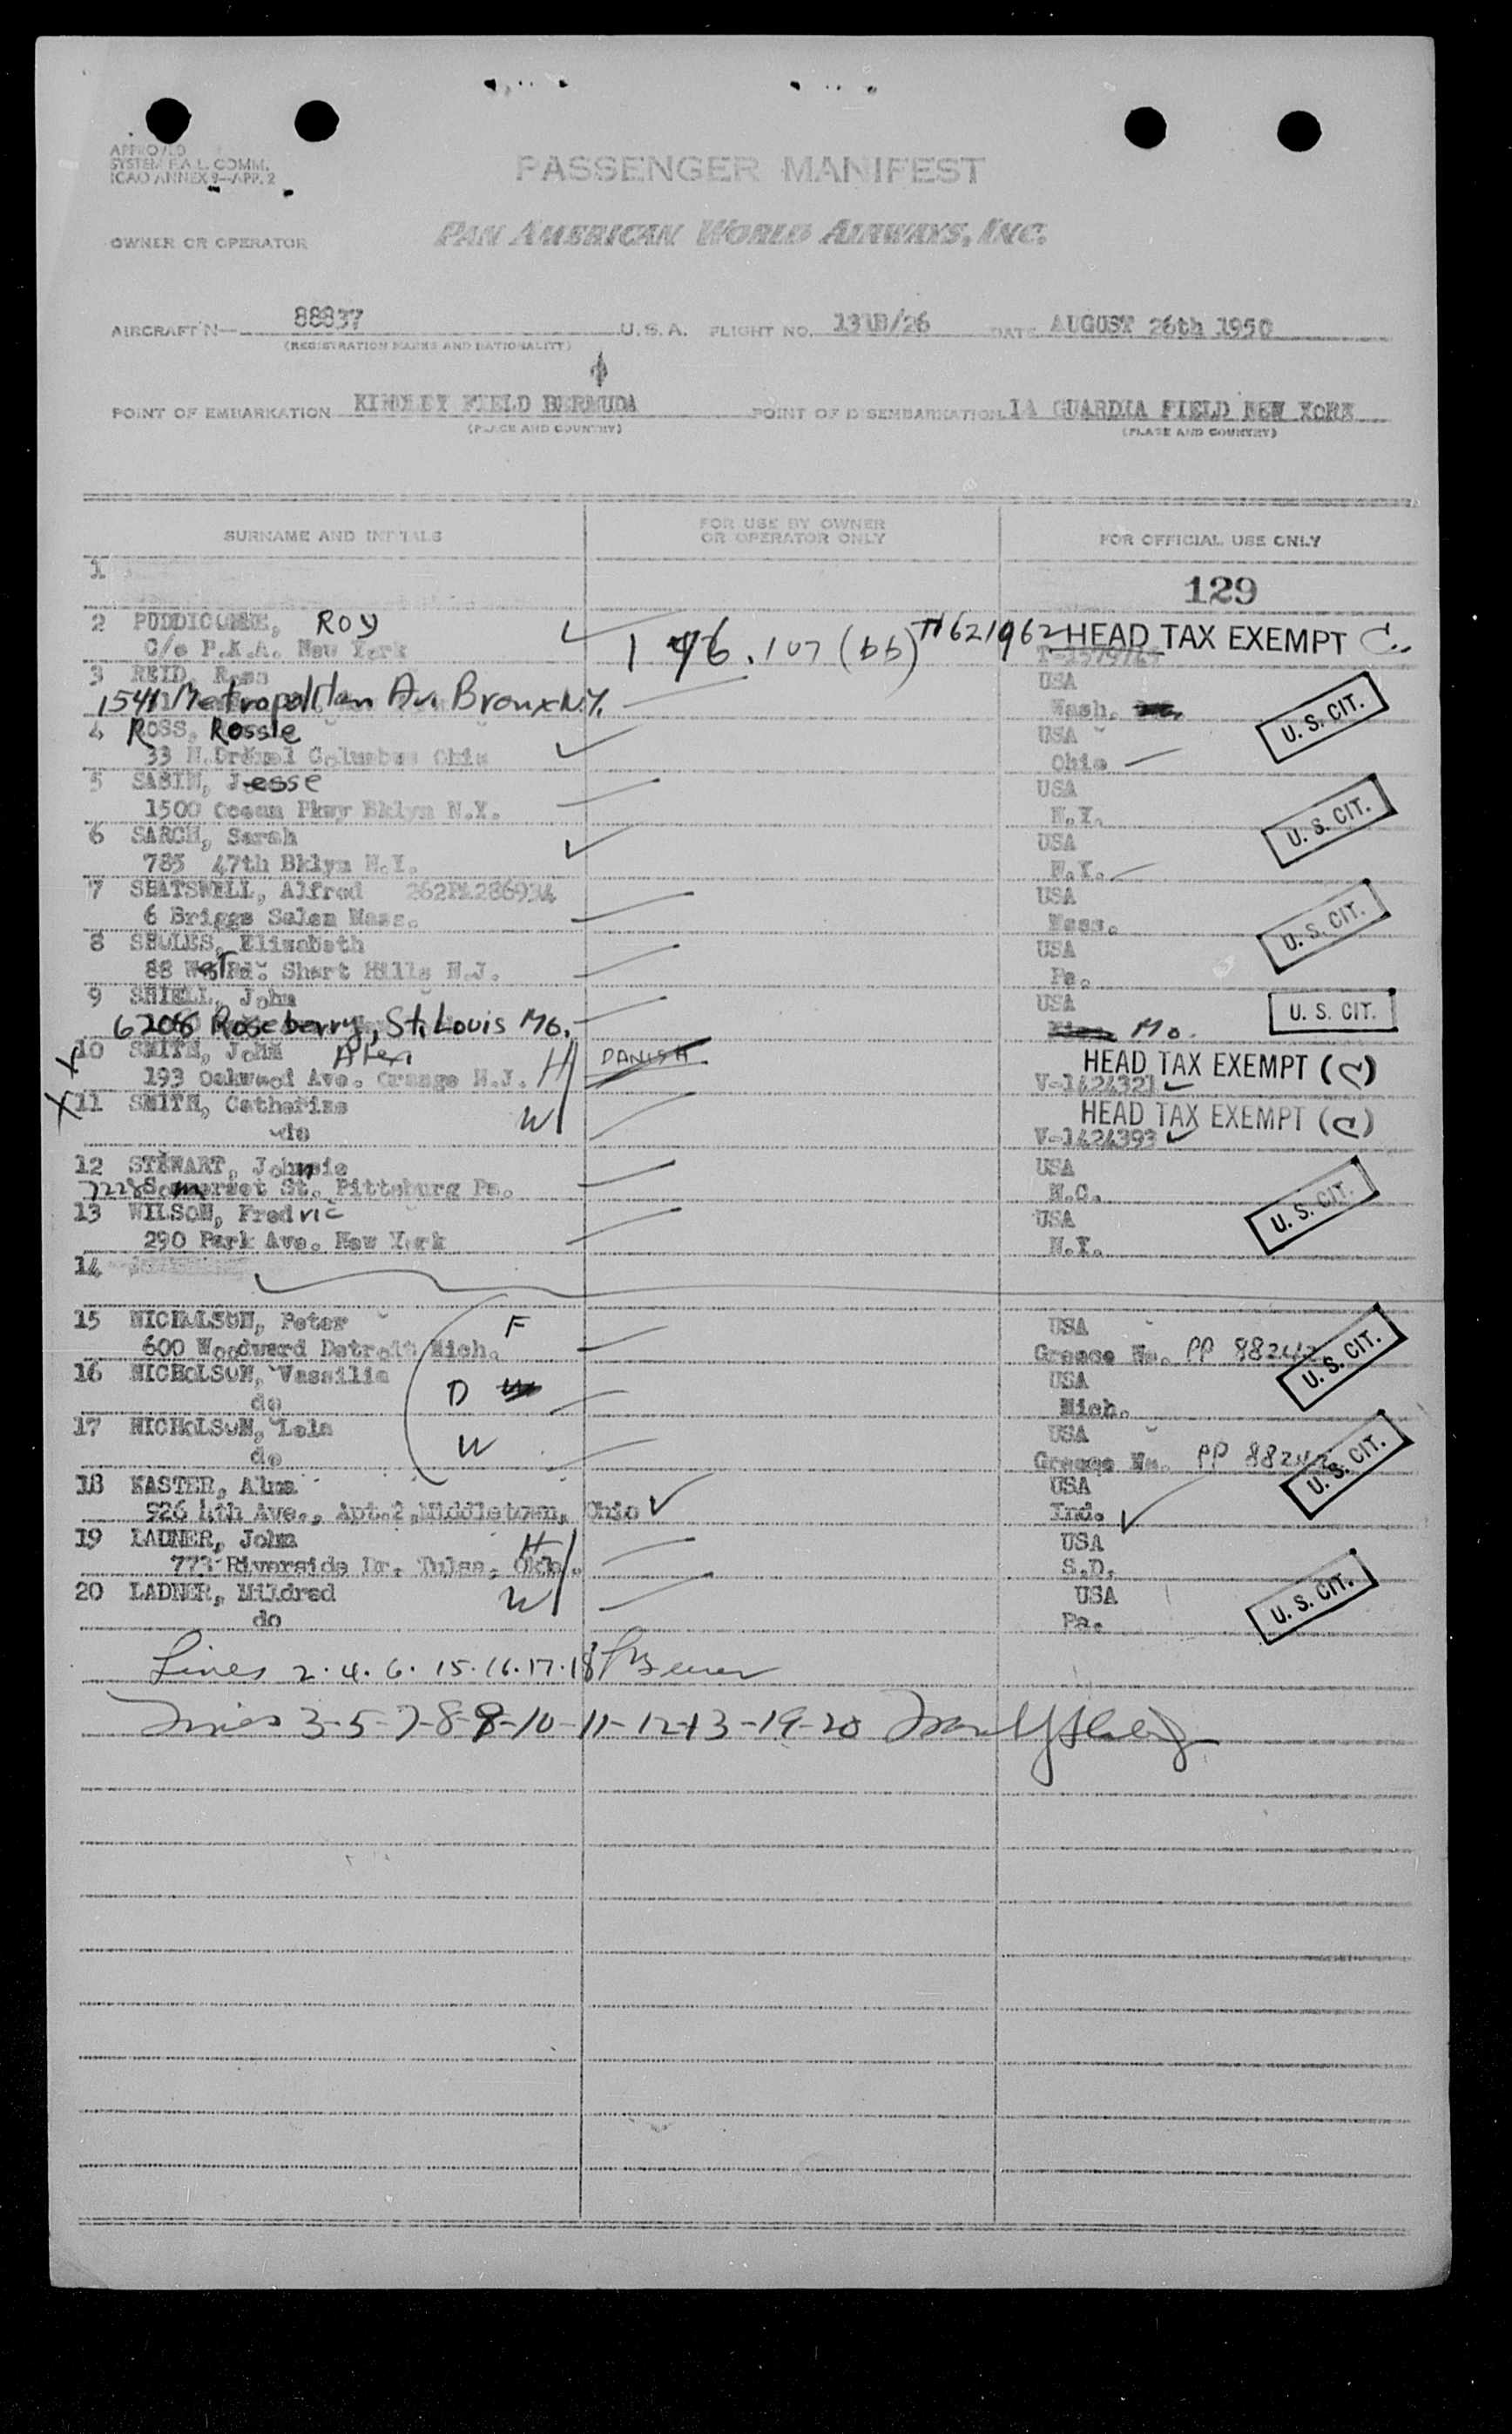 APPROVED
SYSTEM F.A.L. COMM.
ICAO ANNEX 9—APP. 2
PASSENGER MANIFEST
OWNER OR OPERATOR PAN AMERICAN WORLD AIRWAYS, INC.
AIRCRAFT N— 88837 U.S.A. FLIGHT NO. 131B/26 DATE AUGUST 26th 1950
(REGISTRATION MARKS AND NATIONALITY)
POINT OF EMBARKATION KINDLEY FIELD BERMUDA POINT OF DISEMBARKATION LA GUARDIA FIELD NEW YORK
(PLACE AND COUNTRY) (PLACE AND COUNTRY)
SURNAME AND INITIALS FOR USE BY OWNER OR OPERATOR ONLY FOR OFFICIAL USE ONLY
1
129
2 PUDDICOMBE, ROY 176.107 (bb) T1621962 HEAD TAX EXEMPT C.
C/o P.K.A. New York
3 REID, Ross USA
1541 Metropolitan Av Bronx N.Y. Wash. U. S. CIT.
4 ROSS, Rossie USA
33 N.Drexel Columbus Ohio Ohio
5 SABIN, Jesse USA
1500 Ocean Pkwy Bklyn N.Y. N.Y. U. S. CIT.
6 SARCH, Sarah USA
785 47th Bklyn N.Y. N.Y.
7 SHATSWELL, Alfred 262PA286934 USA
6 Briggs Salem Mass. Mass. U. S. CIT.
8 SHOLES, Elizabeth USA
88 West Rd. Short Hills N.J. Pa.
9 SHIELL, John USA
6208 Roseberry, St. Louis Mo. Mo. U. S. CIT.
X 10 SMITH, John Alex H DANISH HEAD TAX EXEMPT (C)
193 Oakwood Ave. Orange N.J. V-1424321
X 11 SMITH, Catherine W HEAD TAX EXEMPT (C)
do V-1424393
12 STEWART, Johnnie USA
7228 Somerset St. Pittsburg Pa. N.C. U. S. CIT.
13 WILSON, Fredric USA
290 Park Ave. New York N.Y.
14
15 NICHOLSON, Peter F USA
600 Woodward Detroit Mich. Greece No. PP 88242 U. S. CIT.
16 NICHOLSON, Vassilia D USA
do Mich.
17 NICHOLSON, Lela W USA
do Greece No. PP 8824 U. S. CIT.
18 KASTER, Alma USA
926 4th Ave., Apt.2, Middletown, Ohio Ind.
19 LADNER, John H USA
773 Riverside Dr. Tulsa, Okla. S.D.
20 LADNER, Mildred W USA
do Pa. U. S. CIT.
Lines 2. 4. 6. 15. 16. 17. 18
Lines 3-5-7-8-9-10-11-12+13-19-20